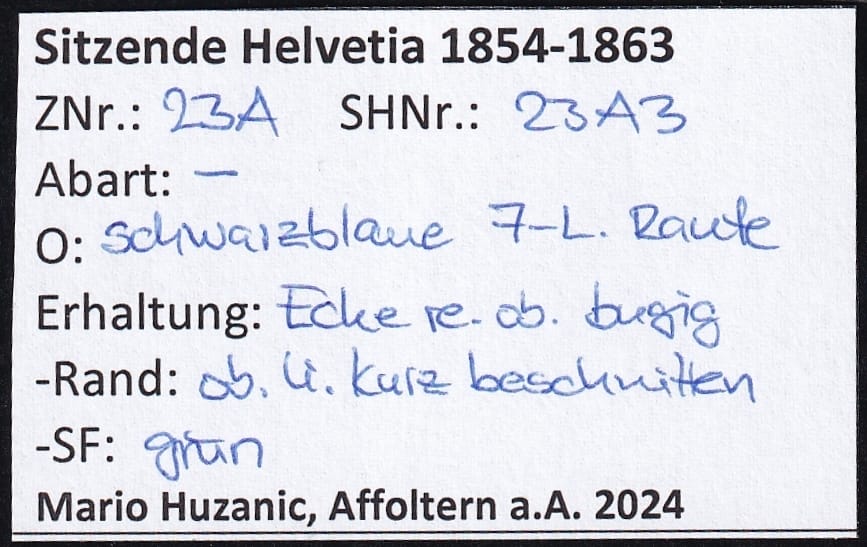 Sitzende Helvetia 1854-1863
ZNr.: 23A SHNr.: 23A3
Abart: –
O: schwarzblaue 7-L. Raute
Erhaltung: Ecke re. ob. bugig
-Rand: ob. li. kurz beschnitten
-SF: grün
Mario Huzanic, Affoltern a.A. 2024